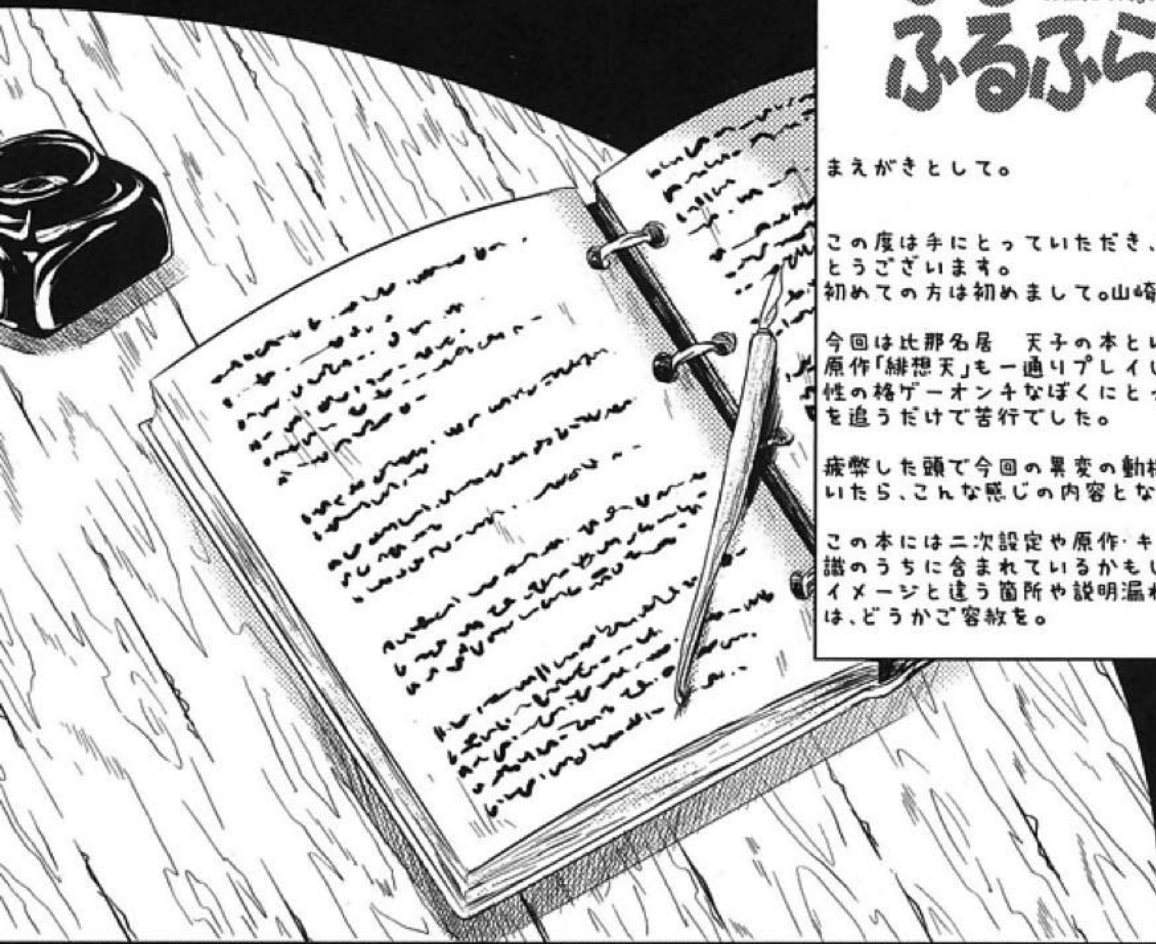 ふるふら
まえがきとして。
この度は手にとっていただき、
とうございます。
初めての方は初めまして。山崎
今回は比那名居　天子の本とい
原作「緋想天」も一通りプレイし
性の格ゲーオンチなぼくにとっ
を追うだけで苦行でした。
疲弊した頭で今回の異変の動機
いたら、こんな感じの内容とな
この本には二次設定や原作・キ
識のうちに含まれているかもし
イメージと違う箇所や説明漏れ
は、どうかご容赦を。